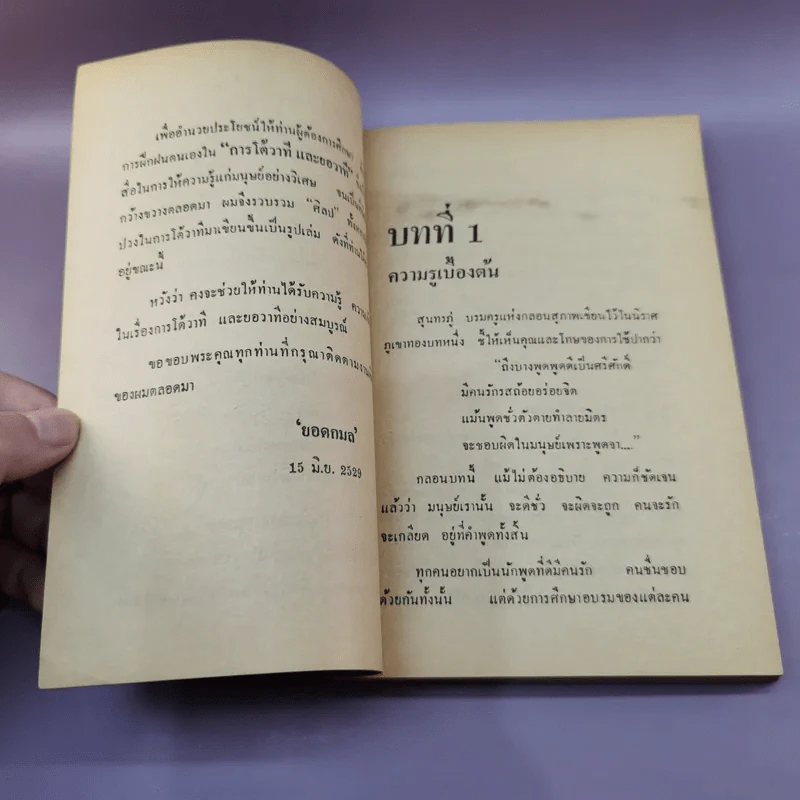 เพื่ออำนวยประโยชน์ให้ท่านผู้ต้องการศึกษา
การฝึกฝนตนเองใน "การโต้วาที และยอวาที"
สื่อในการให้ความรู้แก่มนุษย์อย่างวิเศษ จนเป็นที่
กว้างขวางตลอดมา ผมจึงรวบรวม "ศิลป"
ปวงในการโต้วาทีมาเขียนขึ้นเป็นรูปเล่ม ดังที่ท่าน
อยู่ขณะนี้
หวังว่า คงจะช่วยให้ท่านได้รับความรู้
ในเรื่องการโต้วาที และยอวาทีอย่างสมบูรณ์
ขอขอบพระคุณทุกท่านที่กรุณาติดตาม
ของผมตลอดมา
'ยอดกมล'
15 มิ.ย. 2529
บทที่ 1
ความรู้เบื้องต้น
สุนทรภู่ บรมครูแห่งกลอนสุภาพเขียนไว้ในนิราศ
ภูเขาทองบทหนึ่ง ชี้ให้เห็นคุณและโทษของการใช้ปากว่า
"ถึงบางพูดพูดดีเป็นศรีศักดิ์
มีคนรักรสถ้อยอร่อยจิต
แม้นพูดชั่วตัวตายทำลายมิตร
จะชอบผิดในมนุษย์เพราะพูดจา...."
กลอนบทนี้ แม้ไม่ต้องอธิบาย ความก็ชัดเจน
แล้วว่า มนุษย์เรานั้น จะดีชั่ว จะผิดจะถูก คนจะรัก
จะเกลียด อยู่ที่คำพูดทั้งสิ้น
ทุกคนอยากเป็นนักพูดที่ดีมีคนรัก คนชื่นชอบ
ด้วยกันทั้งนั้น แต่ด้วยการศึกษาอบรมของแต่ละคน